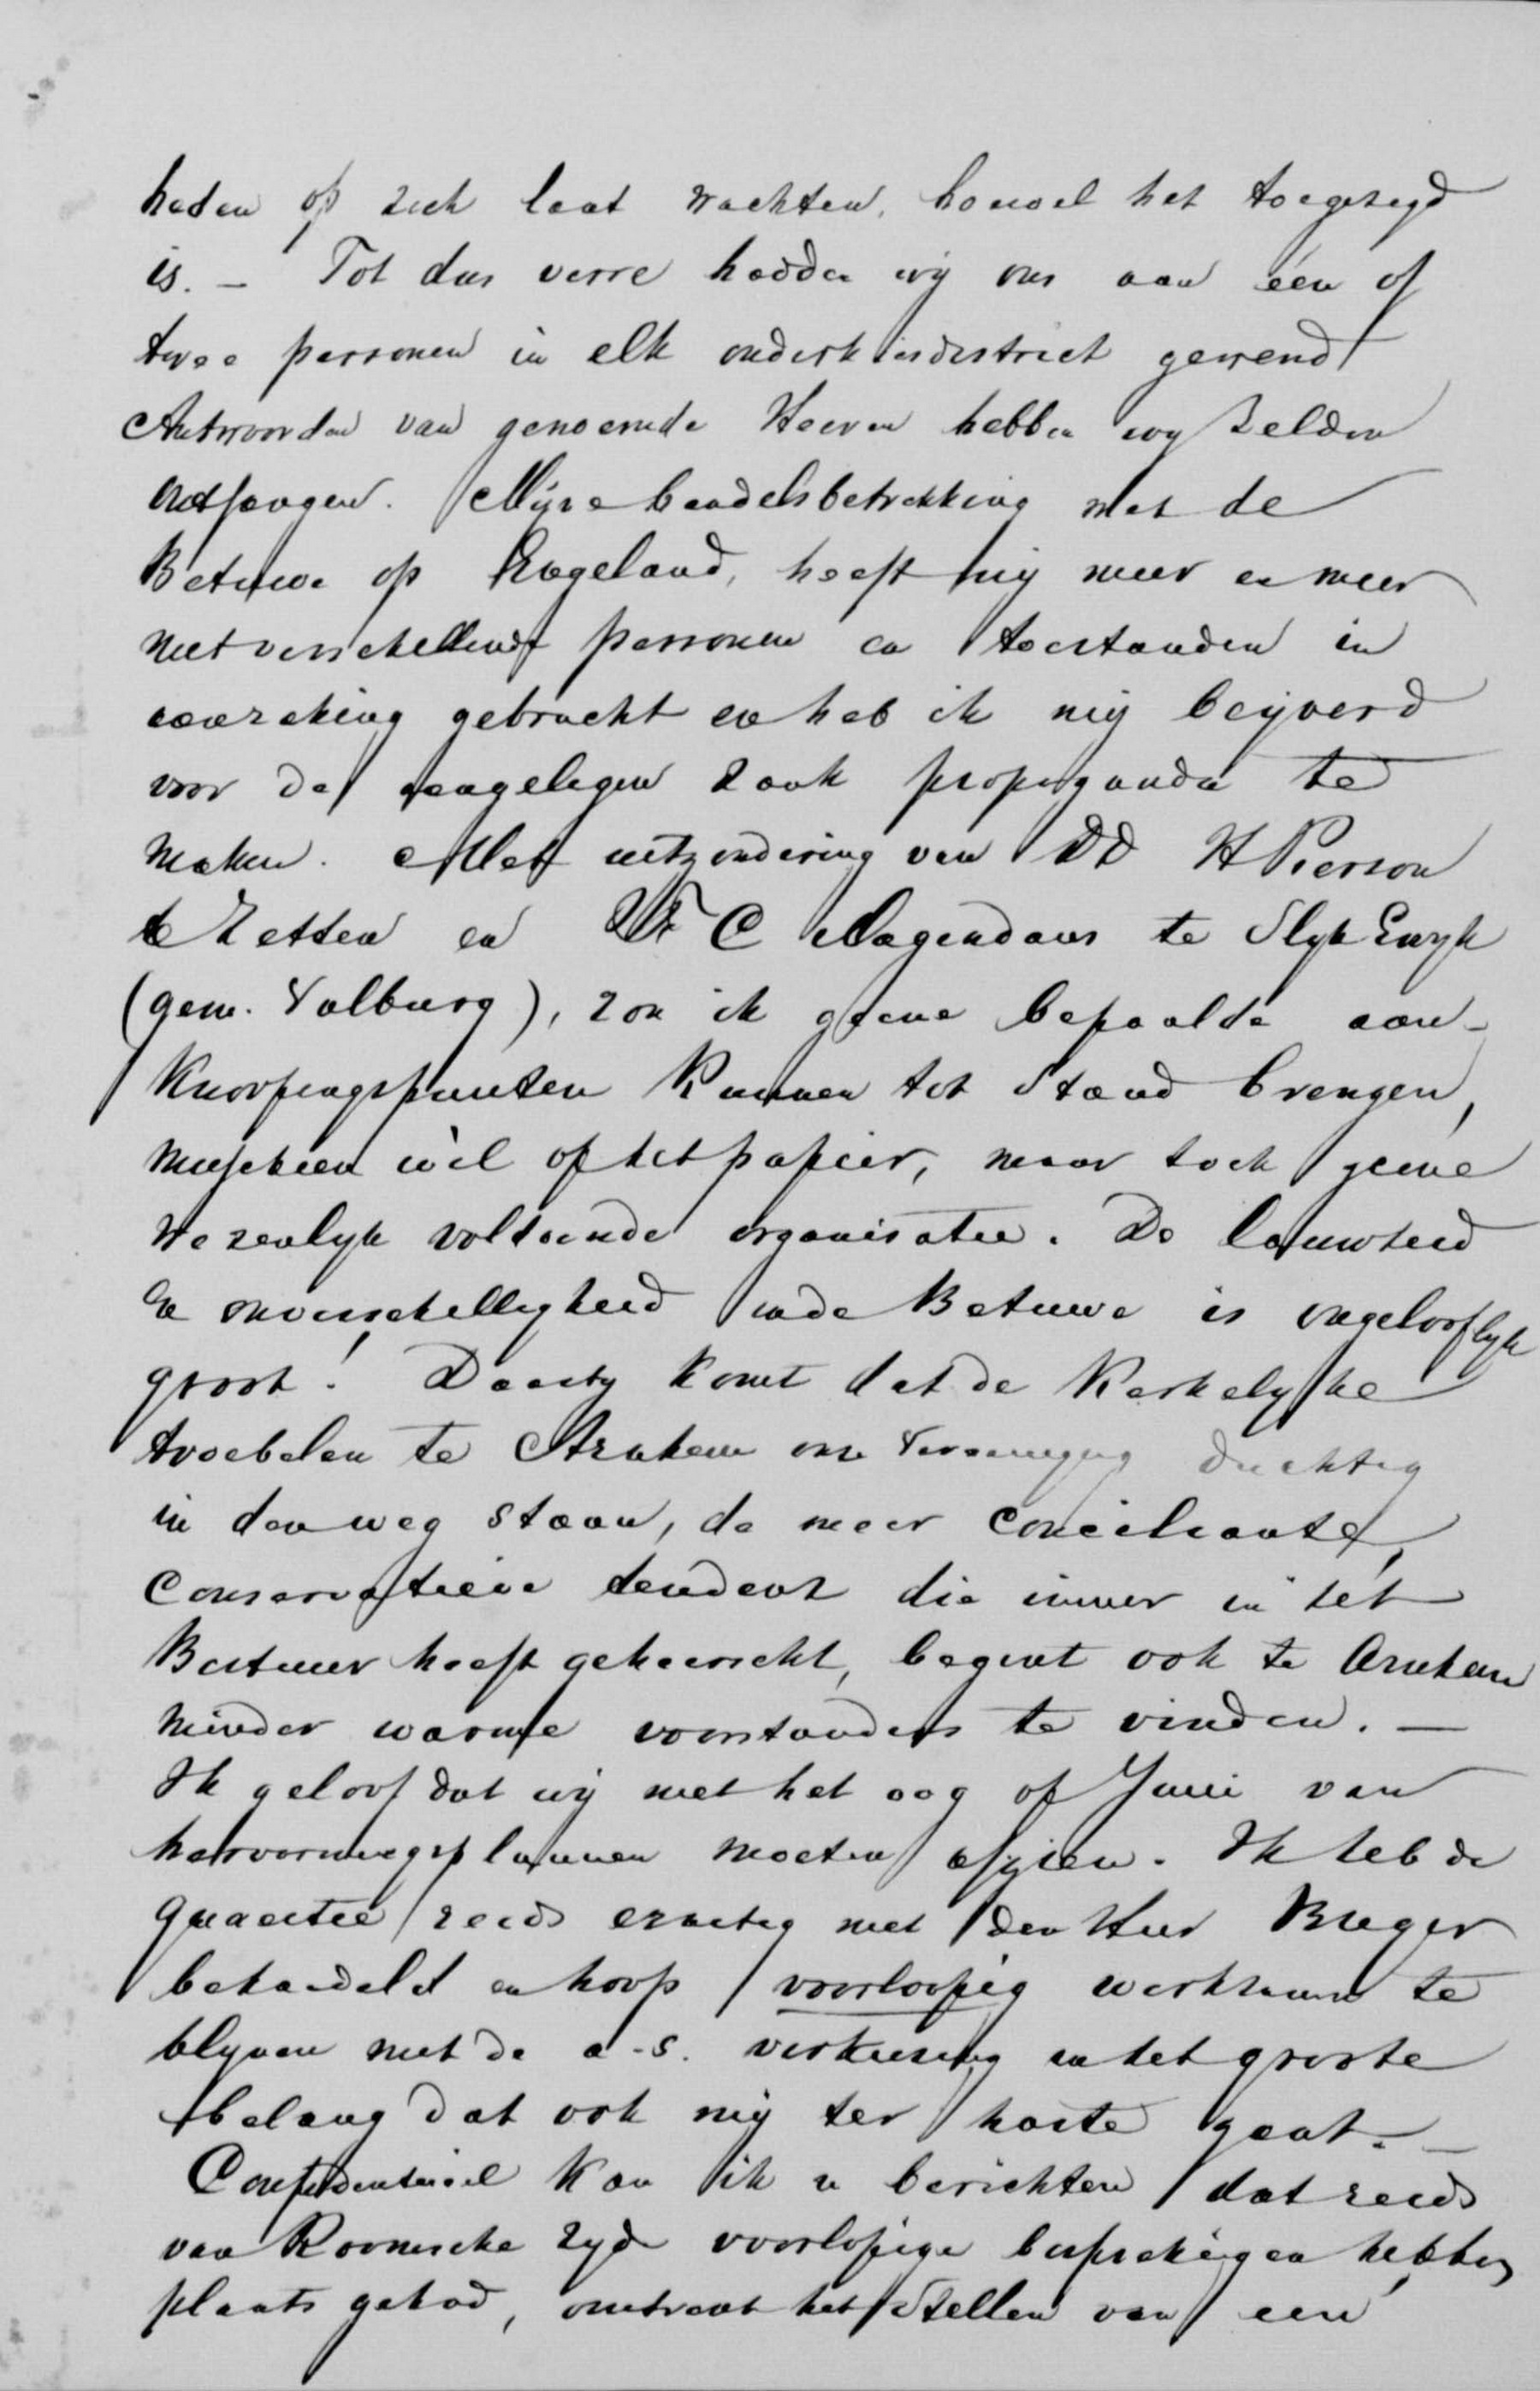 heden op zich laat wachten, hoewel het toegezegd
is. – Tot dus verre hadden wij ons aan één of
twee personen in elk onderkiesdistrict gewend
Antwoorden van genoemde Heeren hebben wy zelden
ontfangen. Mijne handelsbetrekking met de
Betuwe op Engeland, heeft mij meer en meer
met verschillende personen en toestanden in
aanraking gebracht en heb ik mij beijverd
voor de aangelegen zaak propaganda te
maken. Met uitzondering van DD H Pierson
te Zetten en C Magendans te Slyk Ewyk
(gem. Valburg), zou ik geene bepaalde aan-
knoopingspunten kunnen tot stand brengen,
misschien wèl op het papier, maar toch geene
wezenlyk voldoende organisatie. De lauwheid
en onverschelligheid in de Betuwe is ongelooflyk
groot! Daarby komt dat de Kerkelyke
troebelen te Arnhem onze Vereeniging duchtig
in den weg staan, de meer conciliante,
conservatieve tendenz die immer in het
Bestuur heeft geheerscht, begint ook te Arnhem
minder warme voorstanders te vinden. –
Ik geloof dat wij met het oog op Juni van
hervormingsplannen moeten afzien. Ik heb de
quaestie reeds ernstig met den Heer Breger
behandeld en hoop voorloopig werkzaam te
blyven met de a.s. verkiezing in het groote
belang dat ook mij ter harte gaat. –
Confidentieel kan ik u berichten dat reeds
van Roomsche zyde voorlopige besprekingen hebben
plaats gehad, omtrent het stellen van een